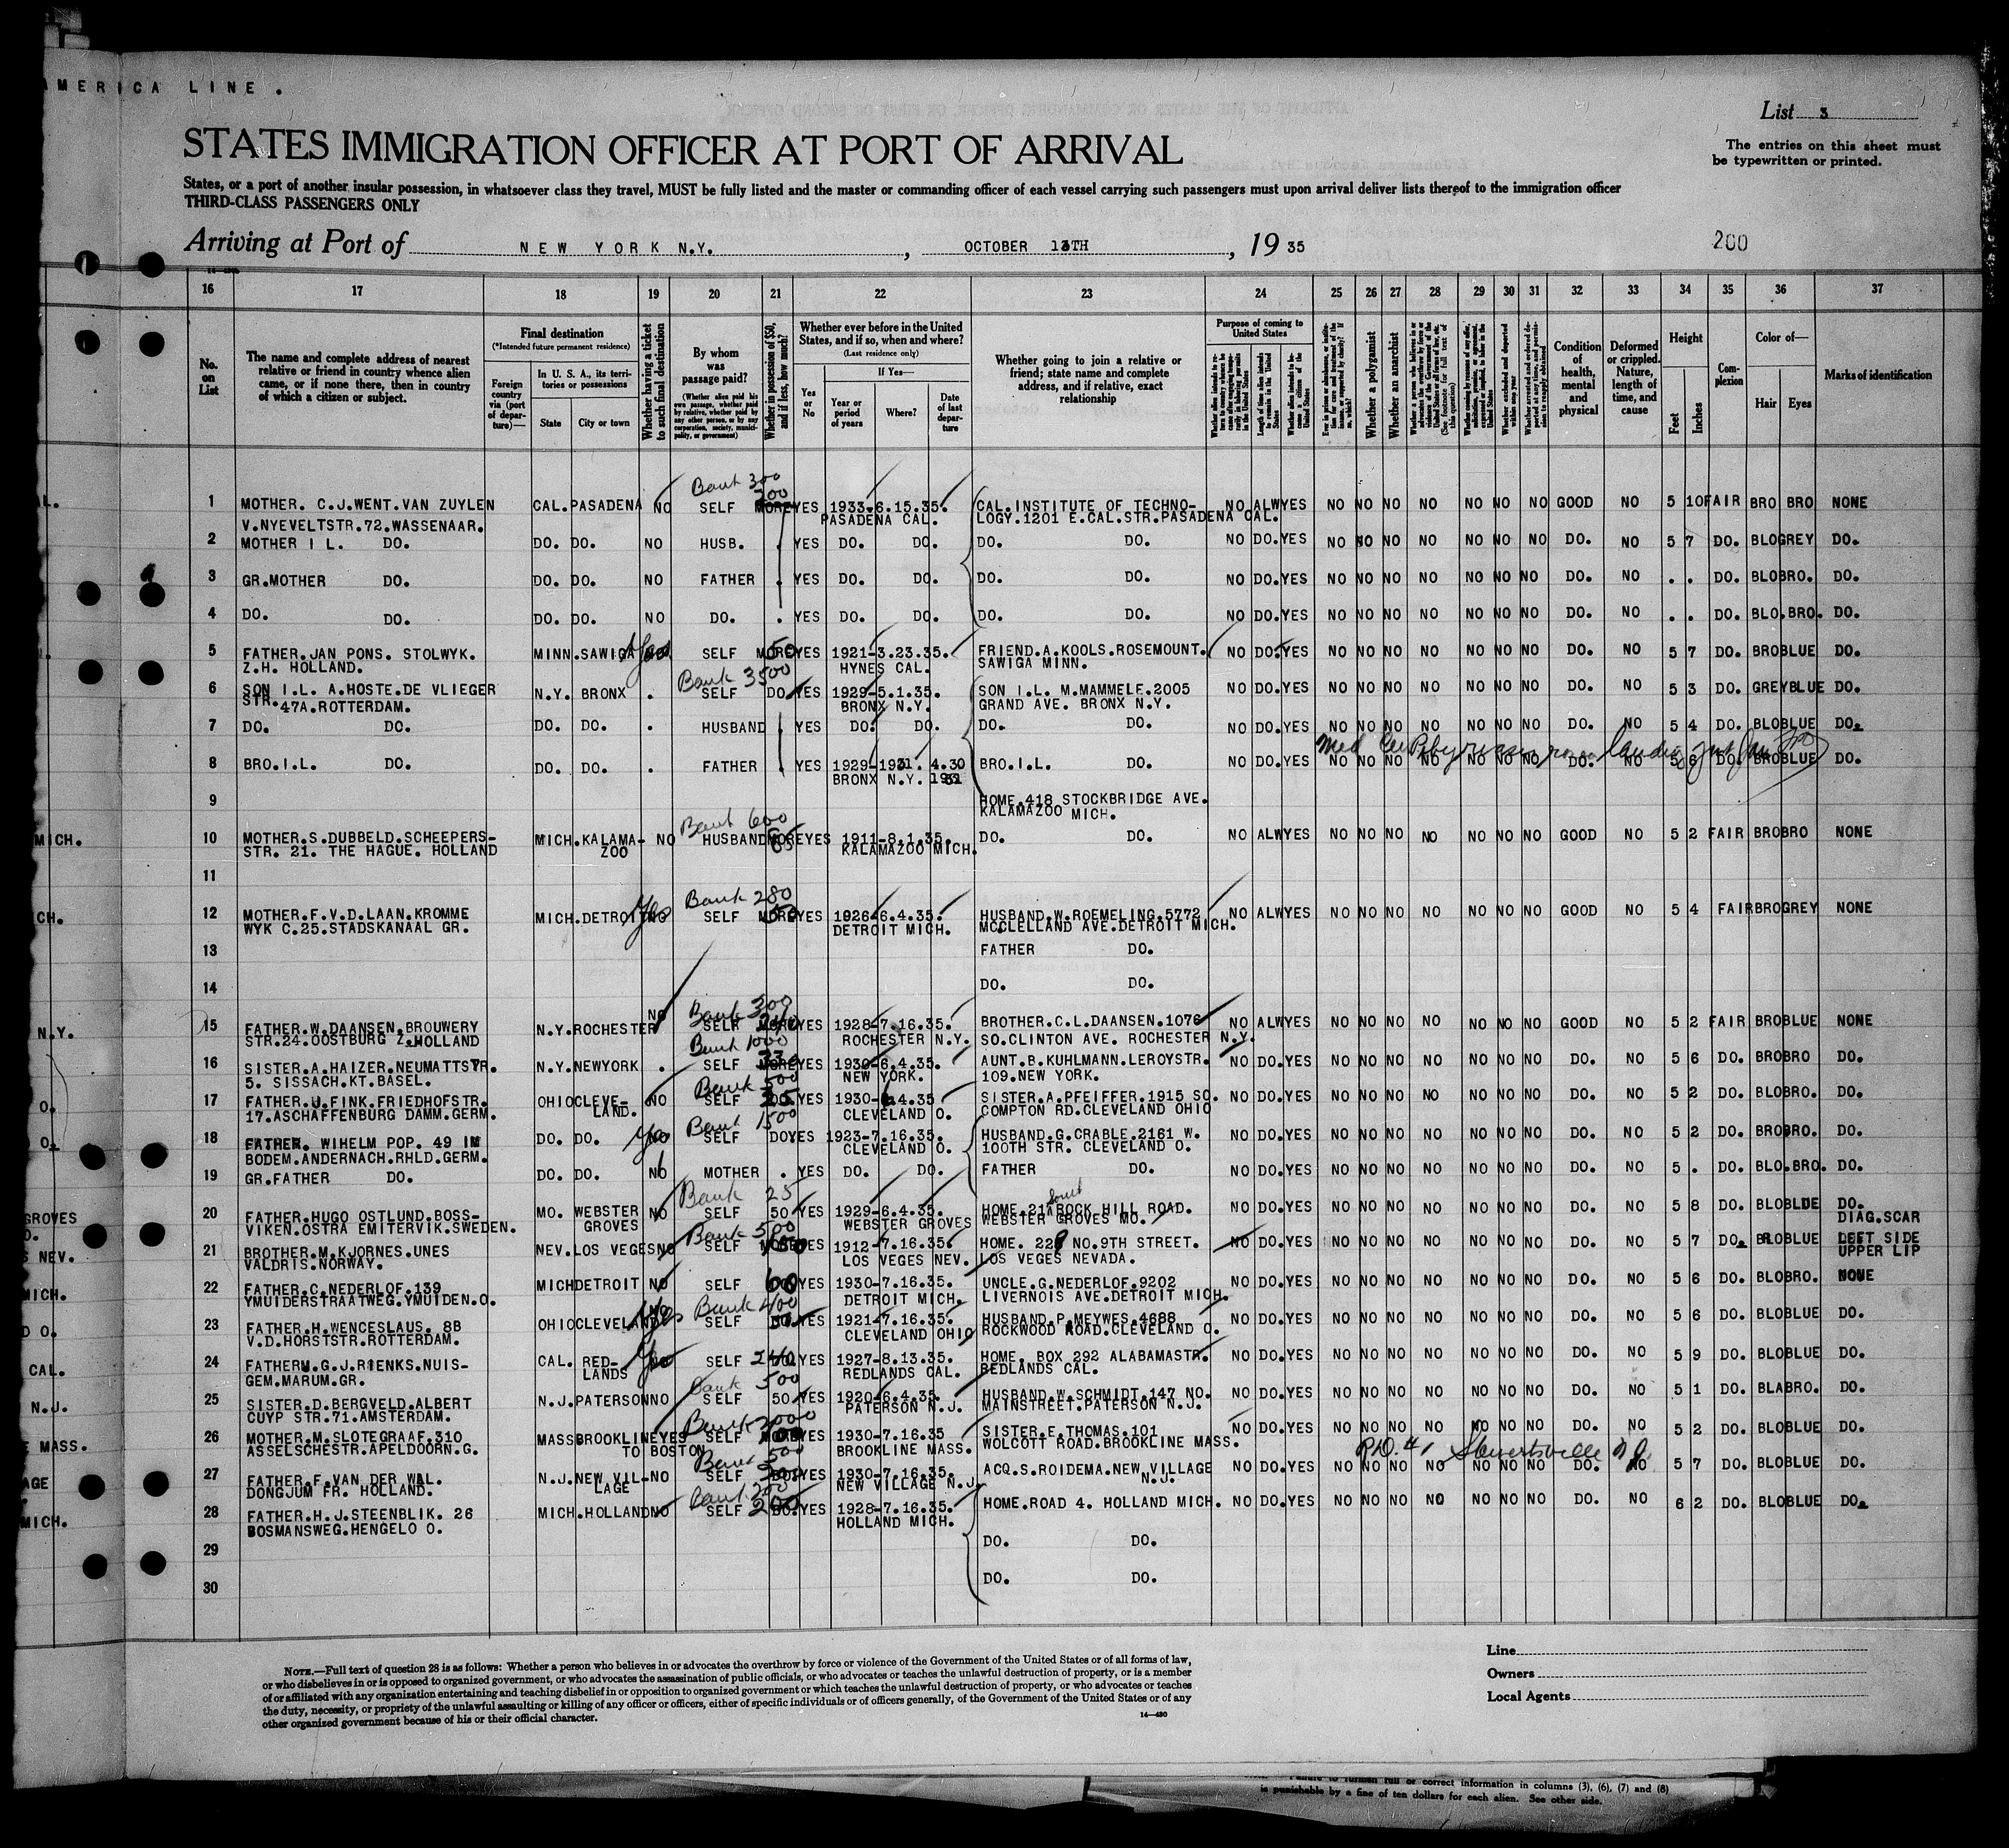 AMERICA LINE.
List 3
STATES IMMIGRATION OFFICER AT PORT OF ARRIVAL
The entries on this sheet must
be typewritten or printed.
States, or a port of another insular possession, in whatsoever class they travel, MUST be fully listed and the master or commanding officer of each vessel carrying such passengers must upon arrival deliver lists thereof to the immigration officer
THIRD-CLASS PASSENGERS ONLY
Arriving at Port of NEW YORK N.Y. , OCTOBER 13TH , 19 35
200
16 17 18 19 20 21 22 23 24 25 26 27 28 29 30 31 32 33 34 35 36 37
No. on List
The name and complete address of nearest relative or friend in country whence alien came, or if none there, then in country of which a citizen or subject.
Final destination
(*Intended future permanent residence)
Foreign country via (port of departure)—
In U. S. A., its territories or possessions
State City or town
Whether having a ticket to such final destination
By whom was passage paid?
(Whether alien paid his own passage, whether paid by relative, whether paid by any other person, or by any corporation, society, municipality, or government)
Whether in possession of $50, and if less, how much?
Whether ever before in the United States, and if so, when and where?
(Last residence only)
Yes or No
If Yes—
Year or period of years Where? Date of last departure
Whether going to join a relative or friend; state name and complete address, and if relative, exact relationship
Purpose of coming to United States
Whether a polygamist
Whether an anarchist
Condition of health, mental and physical
Deformed or crippled. Nature, length of time, and cause
Height
Feet Inches
Complexion
Color of—
Hair Eyes
Marks of identification
Bank 300
1 MOTHER. C.J.WENT.VAN ZUYLEN CAL. PASADENA NO SELF MORE YES 1933-6.15.35. CAL.INSTITUTE OF TECHNO- NO ALW YES NO NO NO NO NO NO NO GOOD NO 5 10 FAIR BRO BRO NONE
V.NYEVELTSTR.72.WASSENAAR. PASADENA CAL. LOGY.1201 E.CAL.STR.PASADENA CAL.
2 MOTHER I L. DO. DO. DO. NO HUSB. . YES DO. DO. DO. DO. NO DO. YES NO NO NO NO NO NO NO DO. NO 5 7 DO. BLO GREY DO.
3 GR.MOTHER DO. DO. DO. NO FATHER . YES DO. DO. DO. DO. NO DO. YES NO NO NO NO NO NO NO DO. NO . . DO. BLO BRO. DO.
4 DO. DO. DO. DO. NO DO. . YES DO. DO. DO. DO. NO DO. YES NO NO NO NO NO NO NO DO. NO . . DO. BLO. BRO. DO.
5 FATHER.JAN PONS. STOLWYK. MINN. SAWIGA Yes SELF MORE 50 YES 1921-3.23.35. FRIEND.A.KOOLS.ROSEMOUNT. NO DO. YES NO NO NO NO NO NO NO DO. NO 5 7 DO. BRO BLUE DO.
Z.H. HOLLAND. HYNES CAL. SAWIGA MINN.
Bank 3500
6 SON I.L. A.HOSTE.DE VLIEGER N.Y. BRONX . SELF DO. YES 1929-5.1.35. SON I.L. M.MAMMELF.2005 NO DO. YES NO NO NO NO NO NO NO DO. NO 5 3 DO. GREY BLUE DO.
STR.47A.ROTTERDAM. BRONX N.Y. GRAND AVE. BRONX N.Y.
7 DO. DO. DO. DO. . HUSBAND YES DO. DO. DO. DO. NO DO. YES NO NO NO NO NO NO NO DO. NO 5 4 DO. BLO BLUE DO.
8 BRO.I.L. DO. DO. DO. . FATHER . YES 1929-1931. 4.30 BRO.I.L. DO. NO DO. YES NO NO NO NO NO NO NO DO. NO 5 6 DO. BRO BLUE DO.
BRONX N.Y.
9 HOME.418 STOCKBRIDGE AVE.
KALAMAZOO MICH.
Bank 600
MICH. 10 MOTHER.S.DUBBELD.SCHEEPERS- MICH. KALAMA- NO HUSBAND MORE YES 1911-8.1.35. DO. DO. NO ALW YES NO NO NO NO NO NO NO GOOD NO 5 2 FAIR BRO BRO NONE
STR. 21. THE HAGUE. HOLLAND ZOO KALAMAZOO MICH.
11
Bank 280
CH. 12 MOTHER.F.V.D.LAAN.KROMME MICH. DETROIT Yes SELF MORE YES 1926-6.4.35. HUSBAND.W.ROEMELING.5772 NO ALW YES NO NO NO NO NO NO NO GOOD NO 5 4 FAIR BRO GREY NONE
WYK C.25.STADSKANAAL GR. DETROIT MICH. MCCLELLAND AVE.DETROIT MICH.
13 FATHER DO.
14 DO. DO.
Bank 300
N.Y. 15 FATHER.W.DAANSEN.BROUWERY N.Y. ROCHESTER NO SELF MORE YES 1928-7.16.35. BROTHER.C.L.DAANSEN.1076 NO ALW YES NO NO NO NO NO NO NO GOOD NO 5 2 FAIR BRO BLUE NONE
STR.24.OOSTBURG Z.HOLLAND ROCHESTER N.Y. SO.CLINTON AVE. ROCHESTER N.Y.
Bank 1000
16 SISTER.A.HAIZER.NEUMATTSTR. N.Y. NEWYORK . SELF MORE YES 1930-6.4.35. AUNT.B.KUHLMANN.LEROYSTR. NO DO. YES NO NO NO NO NO NO NO DO. NO 5 6 DO. BRO BRO DO.
5. SISSACH.KT.BASEL. NEW YORK. 109.NEW YORK.
Bank 500
O. 17 FATHER.J.FINK.FRIEDHOFSTR. OHIO CLEVE- NO SELF YES 1930-6.4.35. SISTER.A.PFEIFFER.1915 SO. NO DO. YES NO NO NO NO NO NO NO DO. NO 5 2 DO. BLO BRO. DO.
17.ASCHAFFENBURG DAMM.GERM. LAND. CLEVELAND O. COMPTON RD.CLEVELAND OHIO
Bank 1500
O. 18 FATHER. WIHELM POP. 49 IM DO. DO. Yes SELF DO. YES 1923-7.16.35. HUSBAND.G.CRABLE.2161 W. NO DO. YES NO NO NO NO NO NO NO DO. NO 5 2 DO. BRO BRO. DO.
BODEM.ANDERNACH.RHLD.GERM. CLEVELAND O. 100TH STR. CLEVELAND O.
19 GR.FATHER DO. DO. DO. NO MOTHER . YES DO. DO. FATHER DO. NO DO. YES NO NO NO NO NO NO NO DO. NO 5 . DO. BLO. BRO. DO.
Bank 25
GROVES 20 FATHER.HUGO OSTLUND.BOSS- MO. WEBSTER NO SELF 50 YES 1929-6.4.35. HOME.21 South ROCK HILL ROAD. NO DO. YES NO NO NO NO NO NO NO DO. NO 5 8 DO. BLO BLUE DO.
VIKEN.OSTRA EMITERVIK.SWEDEN. GROVES WEBSTER GROVES WEBSTER GROVES MO. DIAG.SCAR
Bank 500
NEV. 21 BROTHER.M.KJORNES.UNES NEV. LOS VEGES NO SELF YES 1912-7.16.35. HOME. 228 NO.9TH STREET. NO DO. YES NO NO NO NO NO NO NO DO. NO 5 7 DO. BLUE LEFT SIDE
VALDRIS.NORWAY. LOS VEGES NEV. LOS VEGES NEVADA. UPPER LIP
MICH. 22 FATHER.C.NEDERLOF.139 MICH DETROIT NO SELF 60 YES 1930-7.16.35. UNCLE.G.NEDERLOF.9202 NO DO. YES NO NO NO NO NO NO NO DO. NO 5 6 DO. BLO BRO. NONE
YMUIDERSTRAATWEG.YMUIDEN.O. DETROIT MICH. LIVERNOIS AVE.DETROIT MICH.
Bank 400
O. 23 FATHER.H.WENCESLAUS. 8B OHIO CLEVELAND Yes SELF YES 1921-7.16.35. HUSBAND.P.MEYWES.4688 NO DO. YES NO NO NO NO NO NO NO DO. NO 5 6 DO. BLO BLUE DO.
V.D.HORSTSTR.ROTTERDAM. CLEVELAND OHIO ROCKWOOD ROAD.CLEVELAND O.
CAL. 24 FATHER.G.J.RIENKS.NUIS- CAL. RED- Yes SELF 240 YES 1927-8.13.35. HOME. BOX 292 ALABAMASTR. NO DO. YES NO NO NO NO NO NO NO DO. NO 5 9 DO. BLO BLUE DO.
GEM.MARUM.GR. LANDS REDLANDS CAL. REDLANDS CAL.
Bank 500
N.J. 25 SISTER.D.BERGVELD.ALBERT N.J. PATERSON NO SELF 50 YES 1920-6.4.35. HUSBAND.W.SCHMIDT.147 NO. NO DO. YES NO NO NO NO NO NO NO DO. NO 5 1 DO. BLA BRO. DO.
CUYP STR.71.AMSTERDAM. PATERSON N.J. MAINSTREET.PATERSON N.J.
Bank 2000
MASS. 26 MOTHER.M.SLOTEGRAAF.310 MASS BROOKLINE YES SELF YES 1930-7.16.35 SISTER.F.THOMAS.101 NO DO. YES NO NO NO NO NO NO NO DO. NO 5 2 DO. BLO BLUE DO.
ASSELSCHESTR.APELDOORN.G. TO BOSTON BROOKLINE MASS. WOLCOTT ROAD.BROOKLINE MASS.
Bank 500 Stewartsville N.J.
AGE 27 FATHER.F.VAN DER WAL. N.J. NEW VIL- NO SELF YES 1930-7.16.35. ACQ.S.ROIDEMA.NEW VILLAGE NO DO. YES NO NO NO NO NO NO NO DO. NO 5 7 DO. BLO BLUE DO.
DONGJUM FR. HOLLAND. LAGE NEW VILLAGE N.J. N.J.
Bank 200
MICH. 28 FATHER.H.J.STEENBLIK. 26 MICH. HOLLAND NO SELF 200 YES 1928-7.16.35. HOME.ROAD 4. HOLLAND MICH. NO DO. YES NO NO NO NO NO NO NO DO. NO 6 2 DO. BLO BLUE DO.
BOSMANSWEG.HENGELO O. HOLLAND MICH.
29 DO. DO.
30 DO. DO.
NOTE.—Full text of question 28 is as follows: Whether a person who believes in or advocates the overthrow by force or violence of the Government of the United States or of all forms of law,
or who disbelieves in or is opposed to organized government, or who advocates the assassination of public officials, or who advocates or teaches the unlawful destruction of property, or is a member
of or affiliated with any organization entertaining and teaching disbelief in or opposition to organized government or which teaches the unlawful destruction of property, or who advocates or teaches
the duty, necessity, or propriety of the unlawful assaulting or killing of any officer or officers, either of specific individuals or of officers generally, of the Government of the United States or of any
other organized government because of his or their official character.
14—480
Line
Owners
Local Agents
full or correct information in columns (3), (6), (7) and (8)
is punishable by a fine of ten dollars for each alien. See other side.